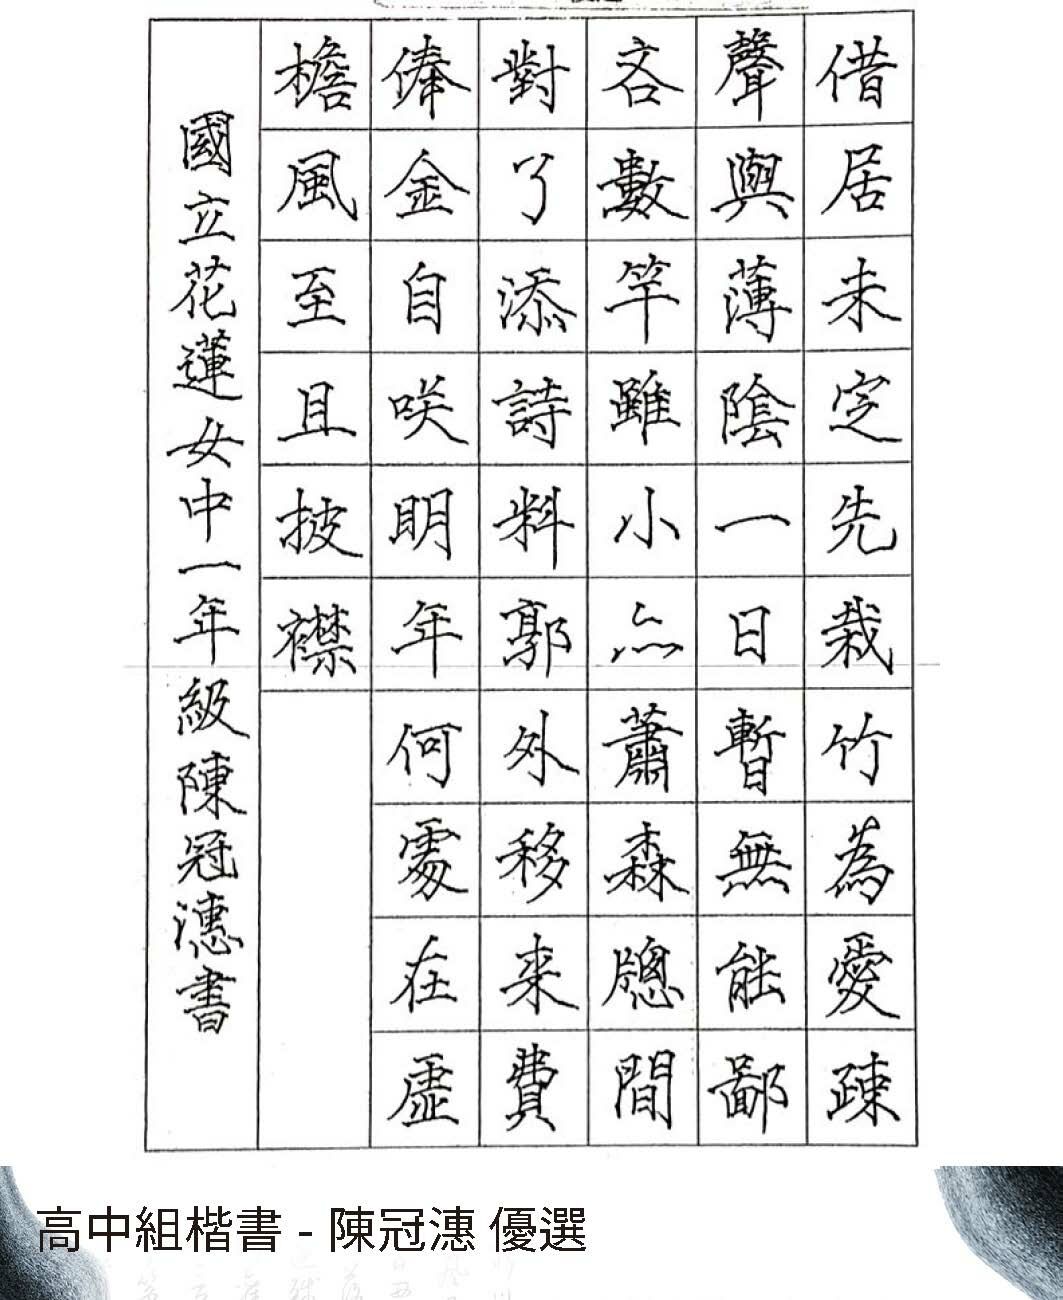 借居未定先栽竹為愛疎
聲與薄陰一日暫無能鄙
吝數竿雖小亦蕭森牕間
對了添詩料郭外移来費
俸金自咲明年何處在虛
檐風至且披襟
國立花蓮女中一年級陳冠漶書
高中組楷書 - 陳冠漶 優選